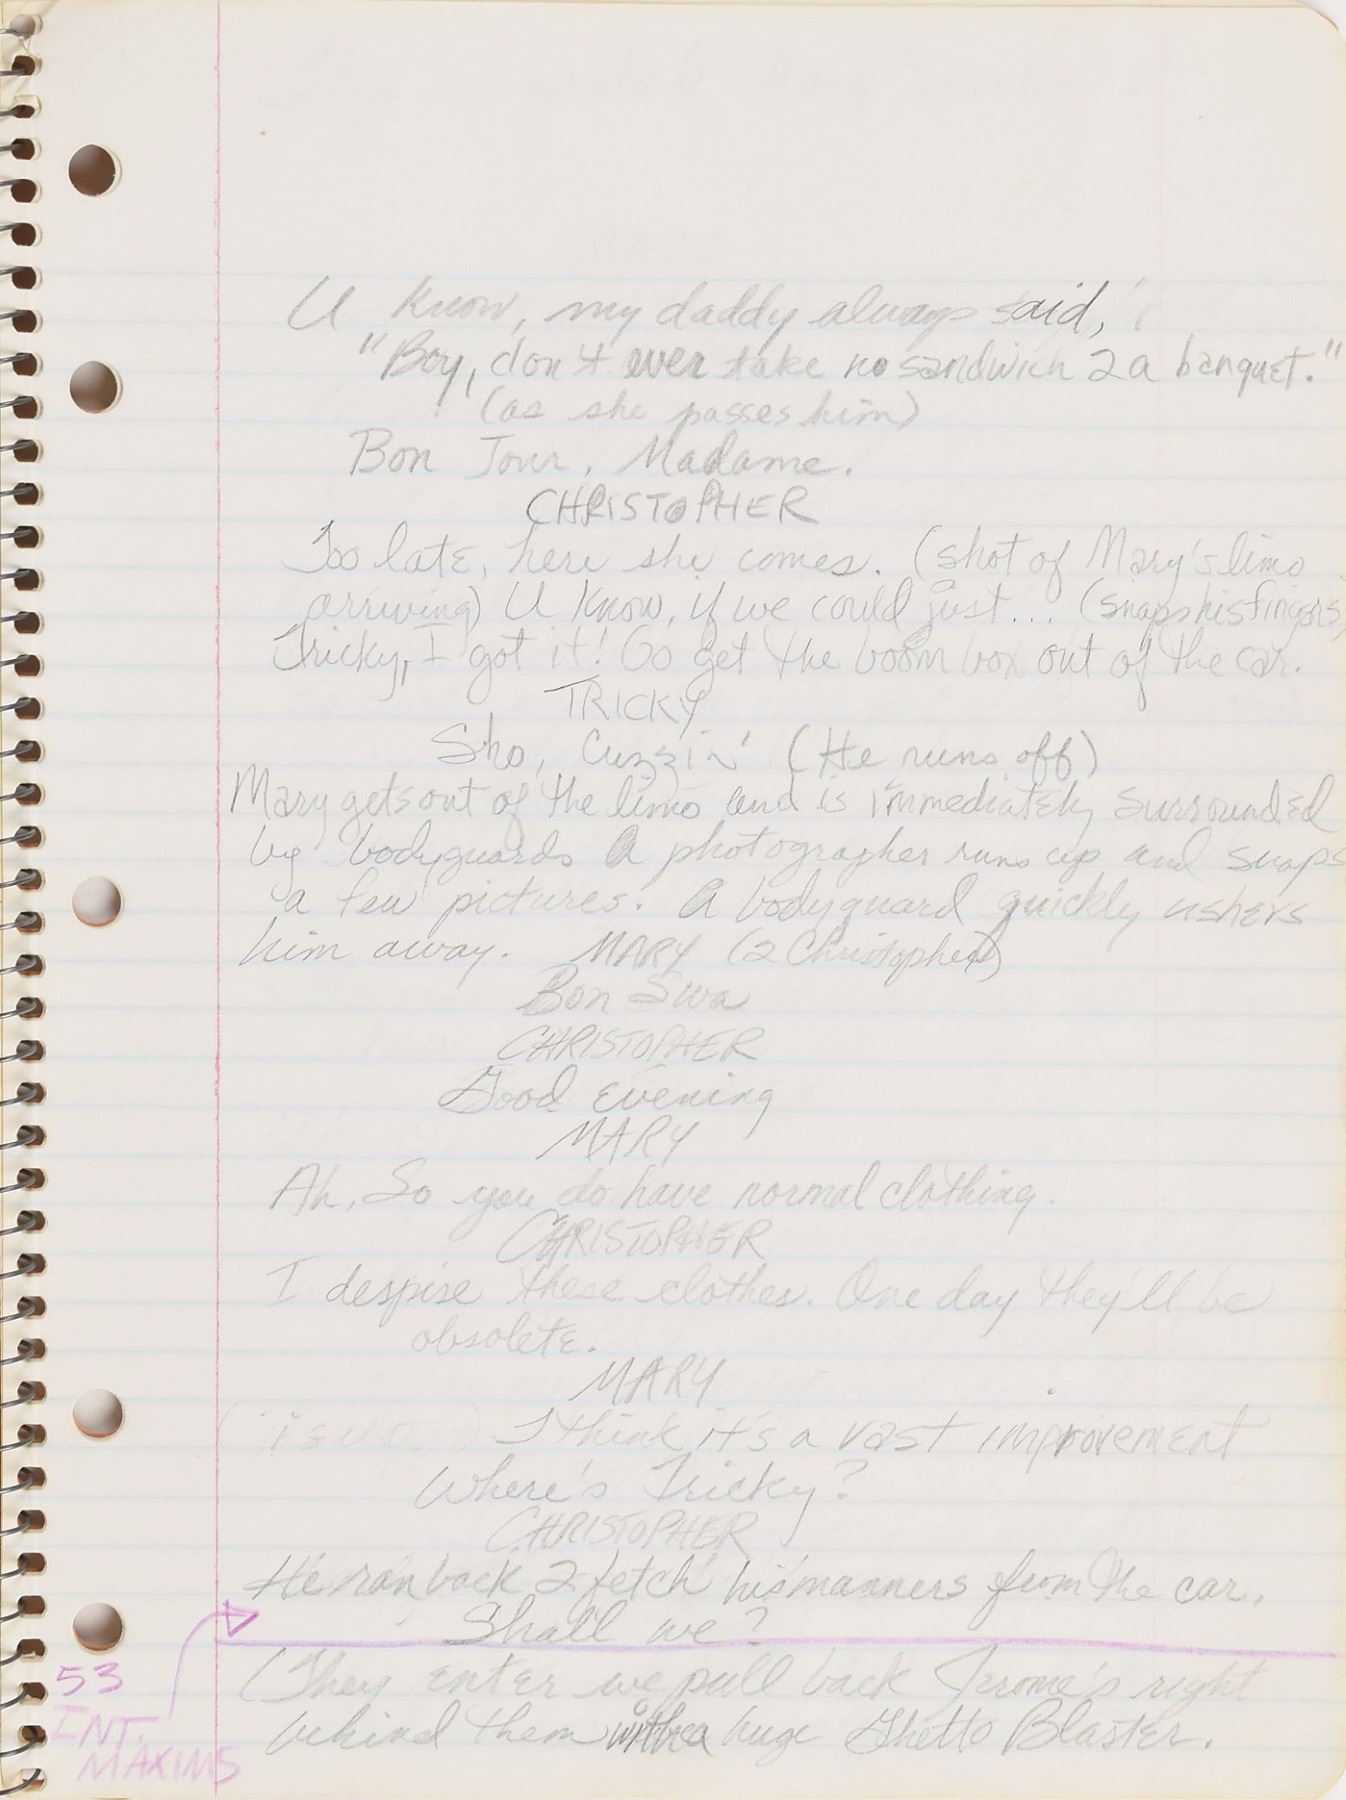 U know, my daddy always said,
"Boy, don't ever take no sandwich 2 a banquet."
(as she passes him)
Bon Jour, Madame.
CHRISTOPHER
Too late, here she comes. (shot of Mary's limo
arriving) U know, if we could just... (snaps his fingers)
Tricky, I got it! Go get the boom box out of the car.
TRICKY
Sho, Cuzzin' (He runs off)
Mary gets out of the limo and is immediately surrounded
by bodyguards A photographer runs up and snaps
a few pictures. A bodyguard quickly ushers
him away. MARY (2 Christopher)
Bon Swa
CHRISTOPHER
Good Evening
MARY
Ah, So you do have normal clothing.
CHRISTOPHER
I despise these clothes. One day they'll be
obsolete.
MARY
I think it's a vast improvement
Where's Tricky?
CHRISTOPHER
He ran back 2 fetch his manners from the car.
Shall we?
(They enter we pull back Jerome's right
behind them with a huge Ghetto Blaster.
53
INT.
MAXIMS